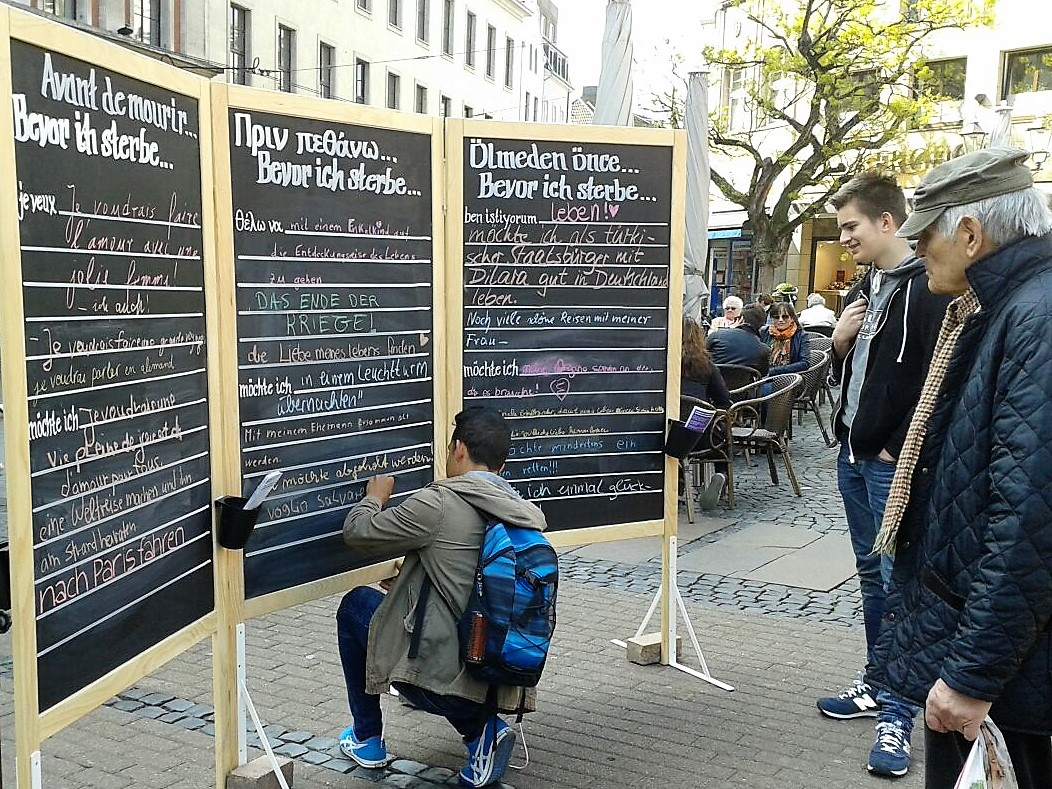 Avant de mourir...
Bevor ich sterbe...
je veux
Je voudrais faire
l'amour avec une
jolie femme!
- ich auch!
- Je voudrais faire un grand voyage
je voudrai parler en allemand
möchte ich
Vie pleine de joie et de
d'amour pour tous.
eine Weltreise machen und ihn
am Strand heiraten
nach Paris fahren
Πριν πεθάνω...
Bevor ich sterbe...
θέλω να mit einem Enkelkind auf
die Entdeckungsreise des Lebens
zu gehen
DAS ENDE DER
KRIEGE!
die Liebe meines Lebens finden
möchte ich in einem Leuchtturm
übernachten"
Mit meinem Ehemann zusammen alt
werden
möchte abgeholt werden
Ölmeden önce...
Bevor ich sterbe...
ben istiyorum leben!
möchte ich als türki-
scher Staatsbürger mit
Dilara gut in Deutschland
leben.
Noch viele schöne Reisen mit meiner
Frau -
möchte ich
möchte mindestens ein
retten!!!
ich einmal glück-